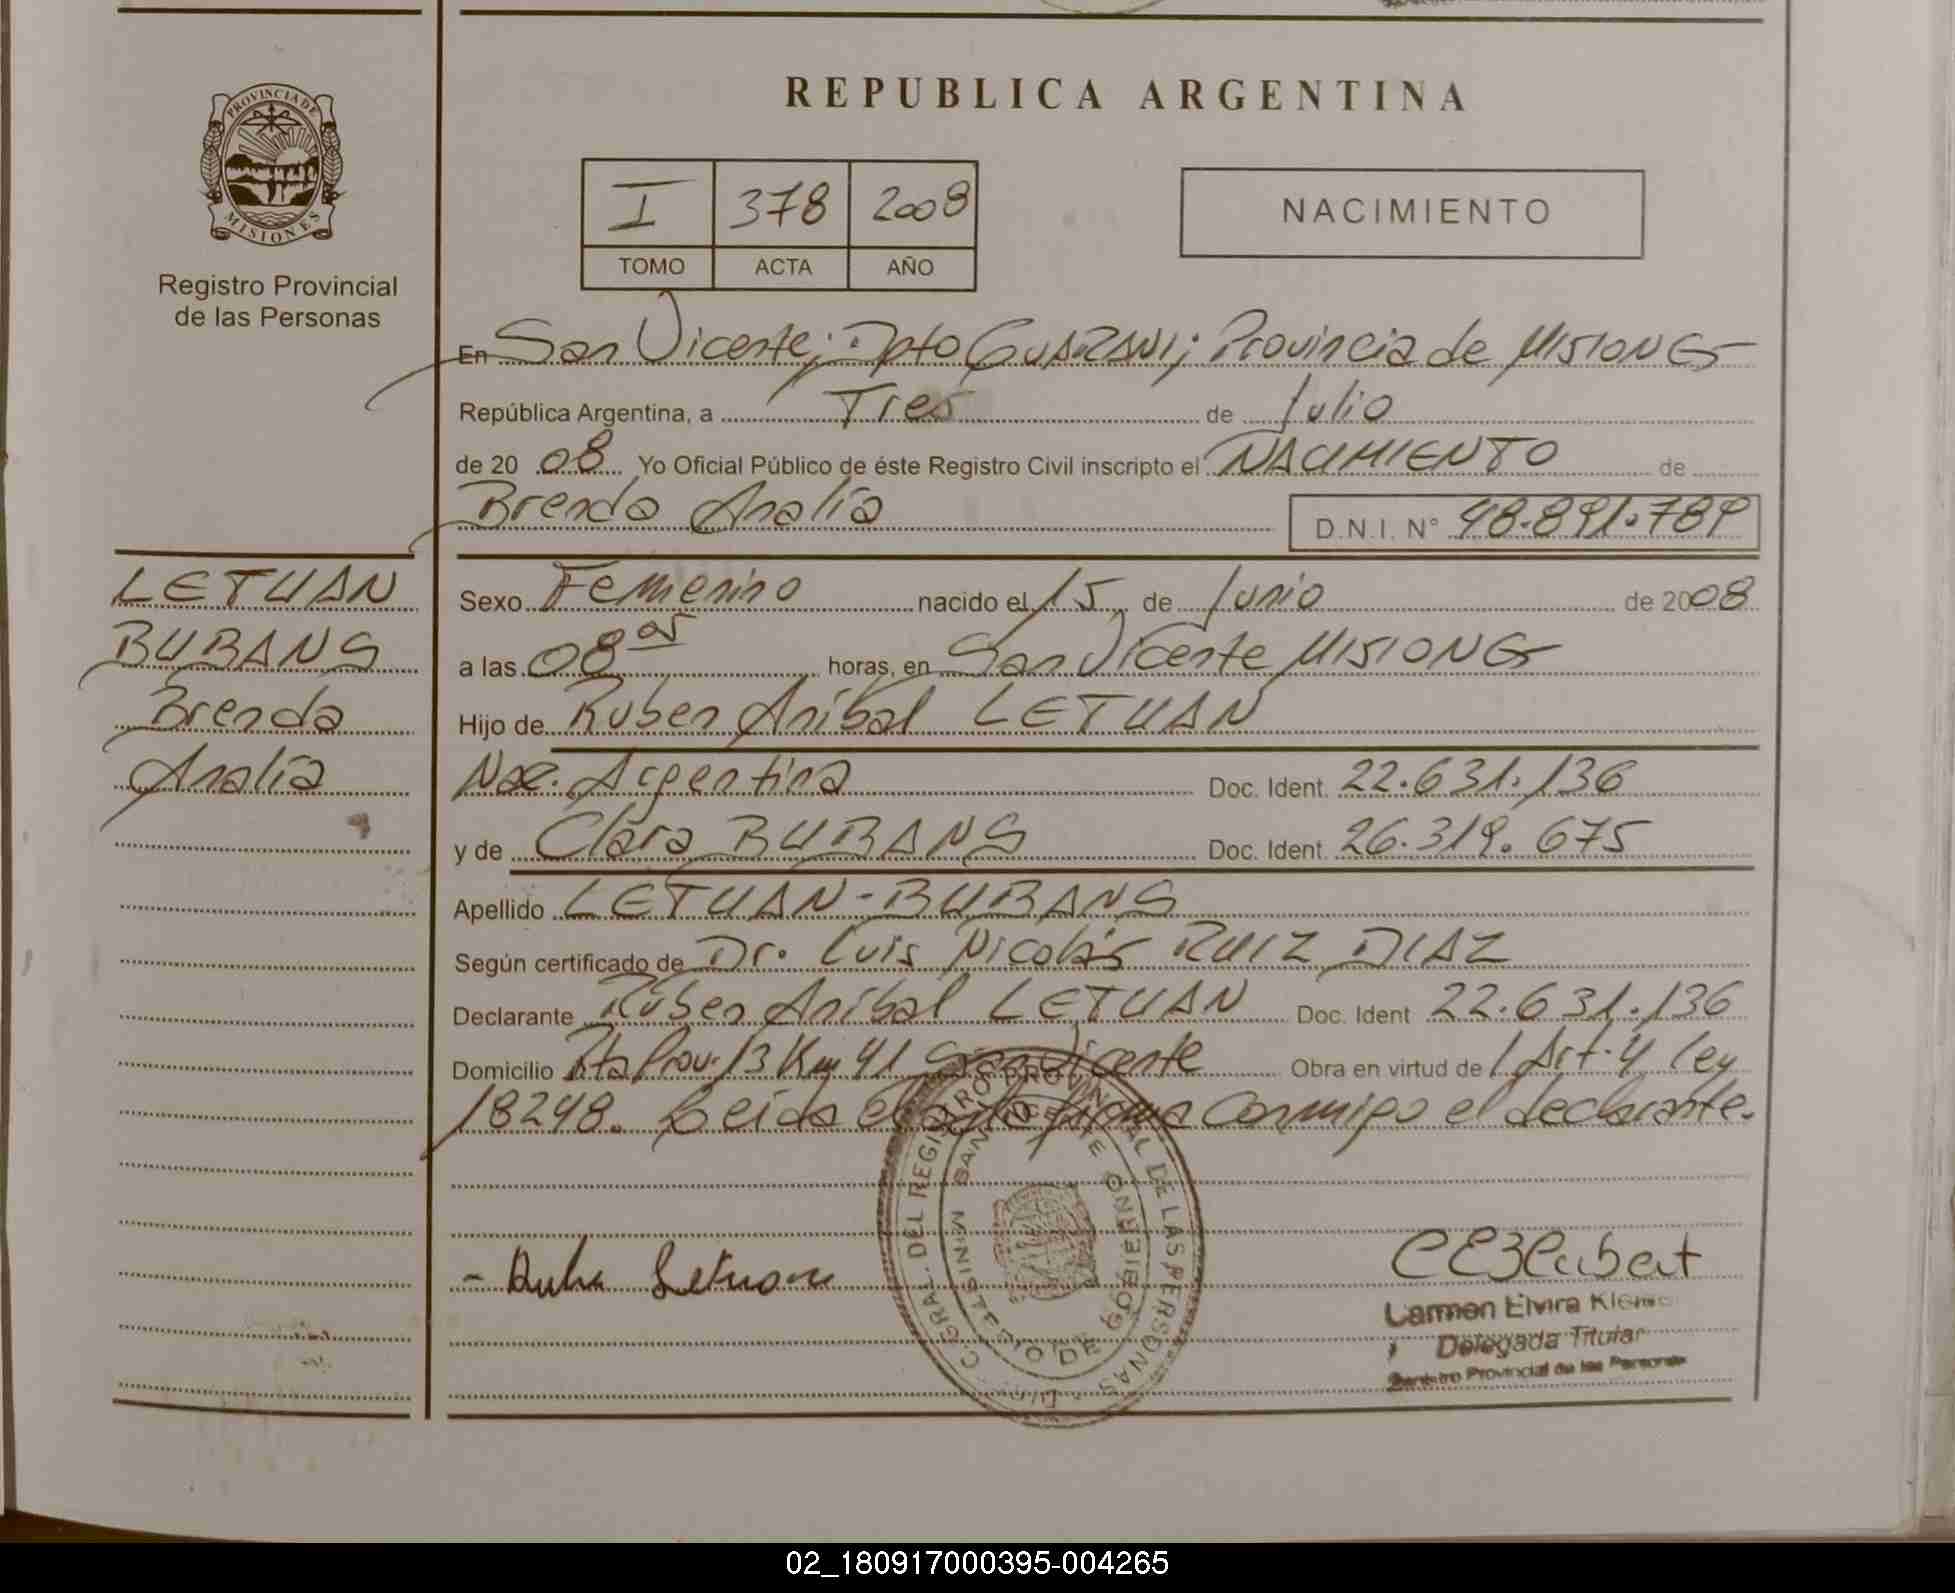 PROVINCIA DE
MISIONES
Registro Provincial
de las Personas
LETUAN
BUBANS
Brenda
Analía
REPUBLICA ARGENTINA
I 378 2008
TOMO ACTA AÑO
NACIMIENTO
En San Vicente; Dpto GUARANI; Provincia de MISIONES
República Argentina, a Tres de Julio
de 2008 Yo Oficial Público de éste Registro Civil inscripto el NACIMIENTO de
Brenda Analía D.N.I. N° 48.891.789
Sexo Femenino nacido el 15 de Junio de 2008
a las 08 05 horas, en San Vicente MISIONES
Hijo de Ruben Aníbal LETUAN
Nac. Argentina Doc. Ident. 22.631.136
y de Clara BUBANS Doc. Ident. 26.319.675
Apellido LETUAN-BUBANS
Según certificado de Dr. Luis Nicolás RUIZ DIAZ
Declarante Rúben Aníbal LETUAN Doc. Ident 22.631.136
Domicilio Rta Prov. 13 Km 41 San Vicente Obra en virtud de Art. 4 ley
18248. Leída el acta firma conmigo el declarante.
DIR. GRAL. DEL REGISTRO PROVINCIAL DE LAS PERSONAS
SAN VICENTE
MINISTERIO DE GOBIERNO
Letuan
Carmen Elvira
Delegada Titular
Registro Provincial de las Personas
02_180917000395-004265